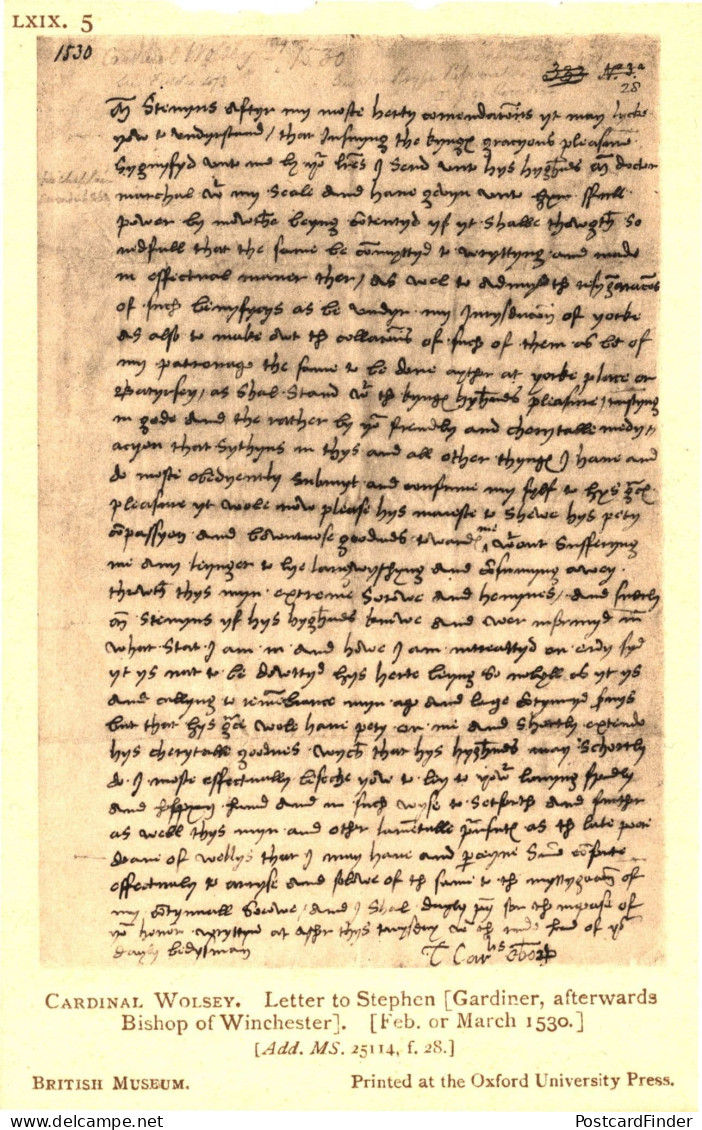 LXIX. 5
1530
My Stevyns aftyr my moste herty comendacions yt may lycke
yow to undyrstand / that insuyng the kyngs gracyous pleasure
sygnyfyd unto me by yor lres I send unto hys hyghnes Mr doctor
marchal wt my Seale and have gevyn unto hym ffull
power by mowthe beyng contentyd yf yt shalbe thowgth so
nedfull that the same be comyttyd to wryttyng and made
in effectual maner ther / as wel to admytt th resygnacons
of such benyfycys as be undyr my Jurysdiccion of yorke
as also to make out th collacions of such of them as be of
my patronage the same to be done other at yorke place or
Batyrsey / as shal stand wt th kyngs hyghnes pleasure / trustyng
in gode and the rather by yor frendly and cherytable medy
acyon that sythyns in thys and all other thyngs I have and
do moste obedyently submyt and conforme my sylf to hys grace
pleasure yt wole now please hys maieste to shewe hys pety
compassyon and bowntuose goodnes towards me wtowt sufferyng
me any lengyer to lye langwyshyng and consumyng awey
throwth thys myn extreme sorowe and hevynes / and suerly
Mr Stevyns yf hys hyghnes knewe and wer informyd in
what stat I am in and howe I am intreattyd on every syd
yt ys nat to be dowttyd hys herte beyng so nobyll as yt ys
and callyng to remembrance myn age and longe contynuyd servys
but that hys grace wole have pety on me and shortly extende
hys cherytable goodnes wych that hys hyghnes may schortly
do I moste effectually beseche yow to ley to yowr lovyng frendly
and helppyng hand and in such wyse to setforth and further
as well thys myn and other lamentable pursuts as th late poore
deane of wellys that I may have and perceyve sum comforte
effectually to aryse and folowe of th same to th mytygacion of
my contynuall sorowe / and I shal dayly pray for th increase of
yor honor wryttyn at Asher thys twysday wt th rude hand of yor
dayly bedysman
T Carlis Ebor
CARDINAL WOLSEY. Letter to Stephen [Gardiner, afterwards
Bishop of Winchester]. [Feb. or March 1530.]
[Add. MS. 25114, f. 28.]
BRITISH MUSEUM. Printed at the Oxford University Press.
PostcardFinder